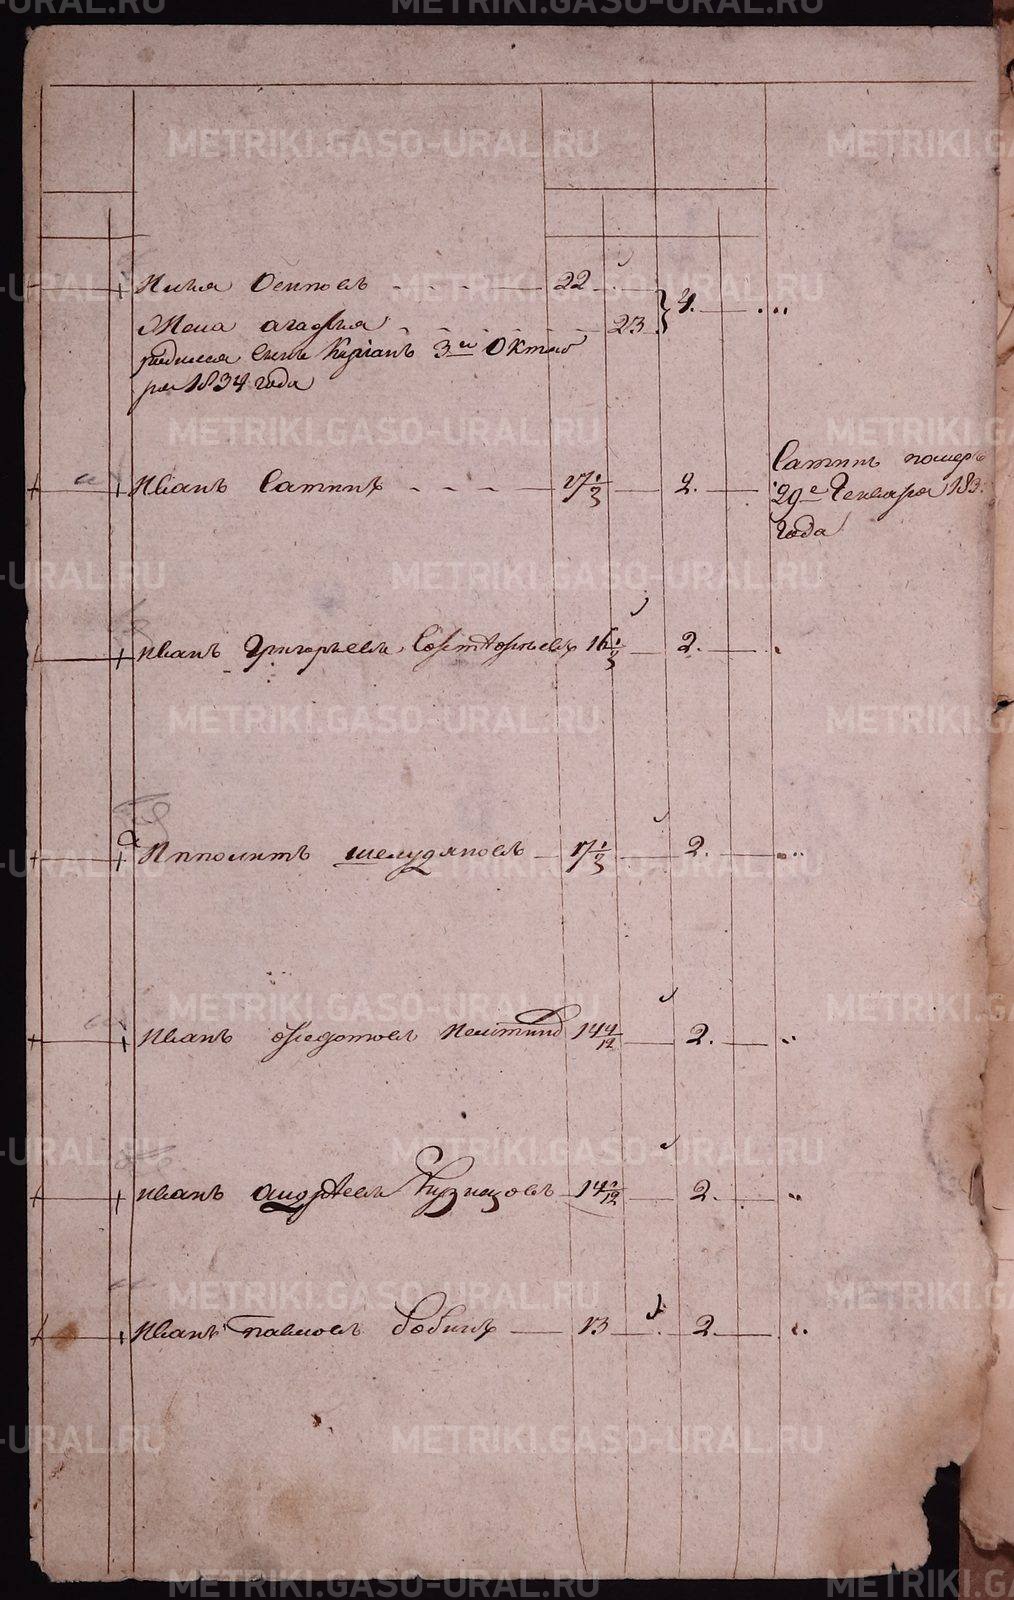 METRIKI.GASO-URAL.RU
Илья Осиповъ 22
Жена Агафья 23 4.
родился сынъ Киріанъ 3го Октяб
ря 1834 года
Иванъ Сатинъ 17 1/3 2. Сатинъ померъ
29е Генваря
года
Иванъ Григорьевъ 16 1/3 2.
Ипполитъ Шелудяковъ 17 1/3 2.
Иванъ Федотовъ 14 4/12 2.
Иванъ Андреевъ Кузнецовъ 2.
Иванъ Павловъ Бобинъ 13 2.